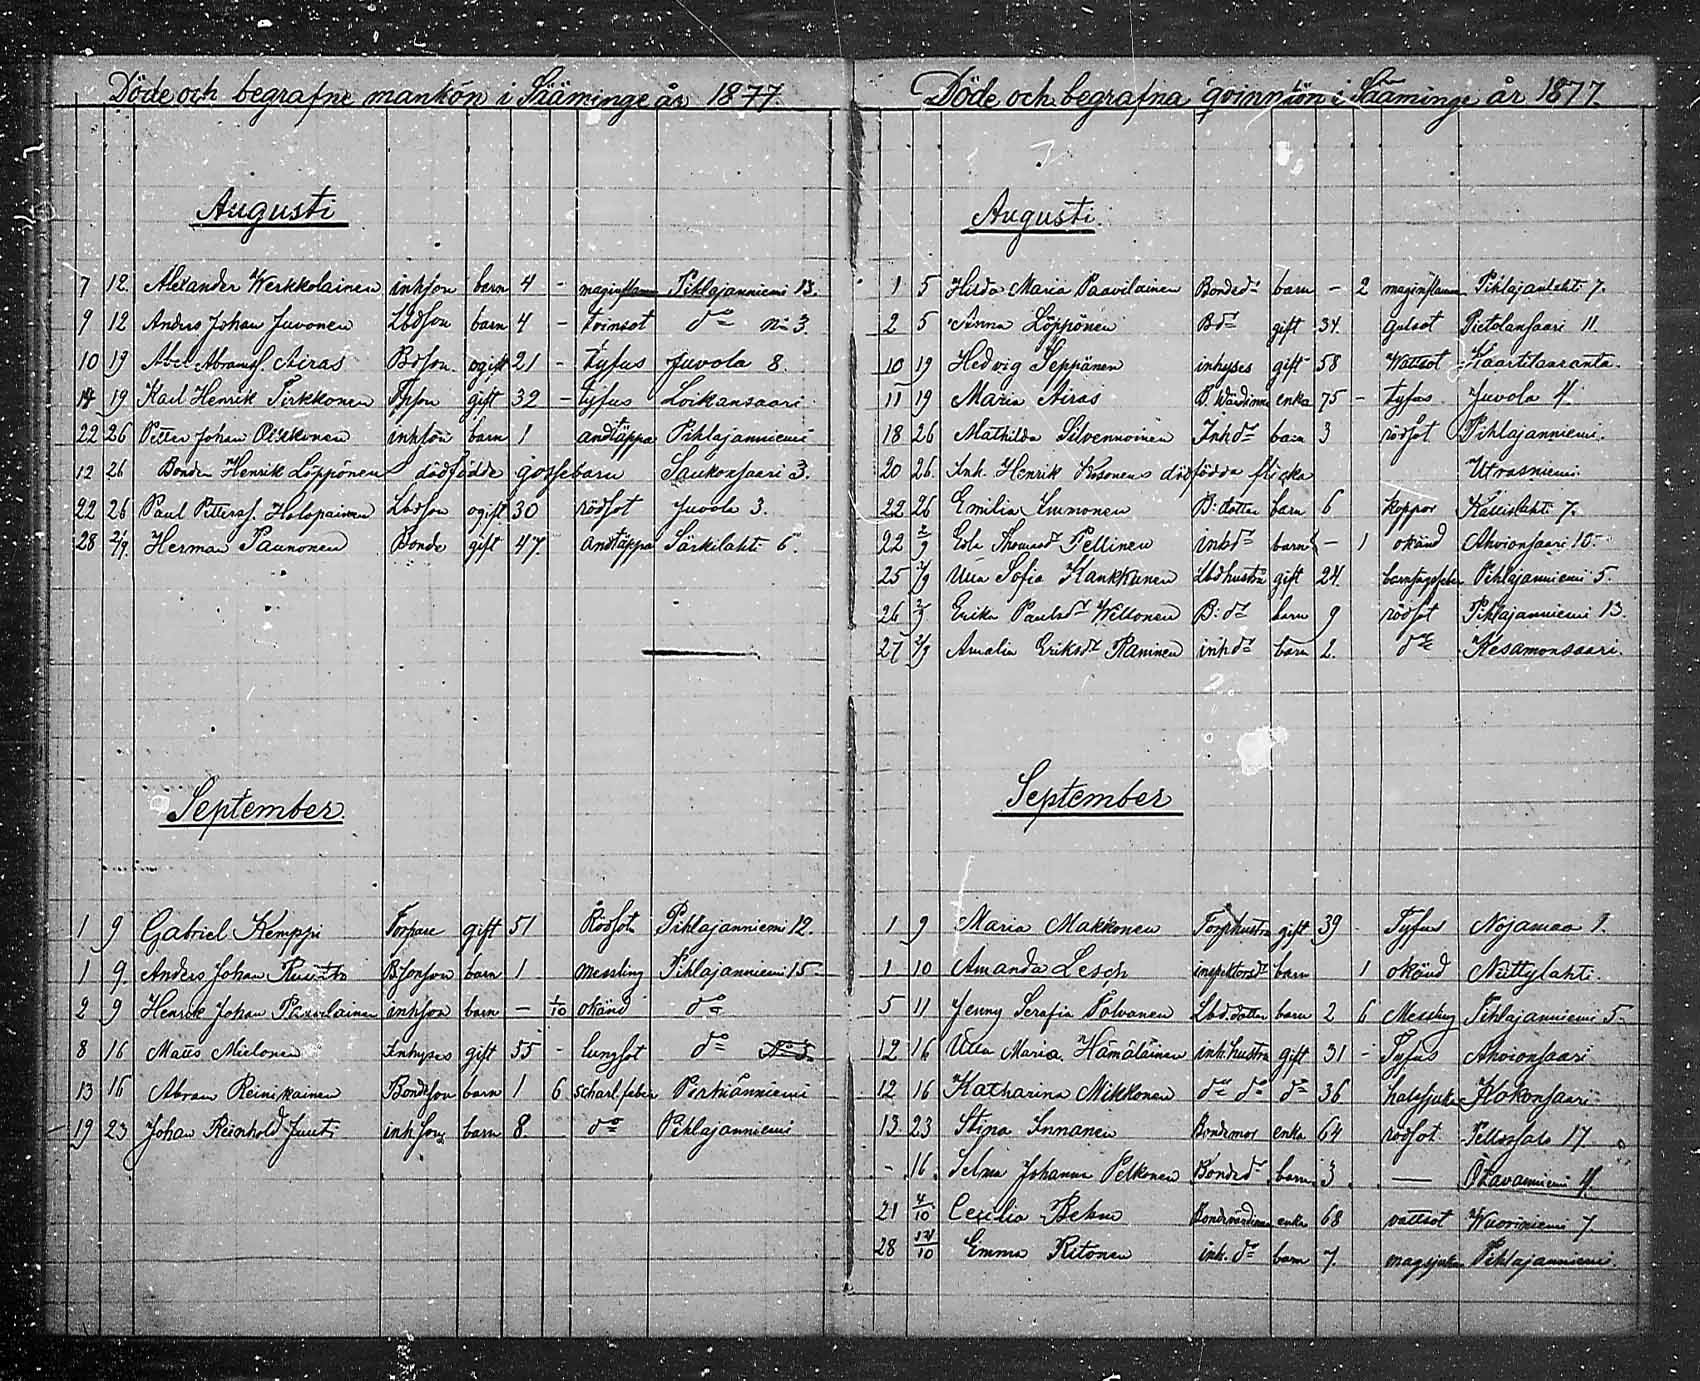 Döde och begrafne mankön i Sääminge år 1877.
Augusti
7 12. Alexander Werkkolainen inhson barn 4 - maginflamm Pihlajanniemi 13.
9 12 Anders Johan Juvonen Lbdson barn 4 - tvinsot do no 3.
10 19 Abel Abramss. Airas Bdson. ogift 21 - tyfus Juvola 8.
14 19 Karl Henrik Tirkkonen Tpson gift 32 - tyfus Loikansaari
22 26 Petter Johan inhson barn 1 andtäppa Pihlajanniemi
12 26 Bonden Henrik Löppönen dödfödde gossebarn Saukonsaari 3.
22 26 Paul Petterss. Holopainen Lbdson ogift 30 rödsot Juvola 3.
28 2/9. Herman Paunonen Bonde gift 47. andtäppa Särkilahti 6.
September
1 9 Gabriel Kemppi Torpare gift 51 Rödsot Pihlajanniemi 12.
1 9. Anders Johan Bsonson barn 1 messling Pihlajanniemi 15
2 9 Henrik Johan inhson barn - 1/10 okänd do
8 16 Matts Mielonen Inhyses gift 55 - lungsot do No 3.
13 16 Abram Reinikainen Bondeson barn 1 6 scharl.feber
19 23 Johan Reinhold Juuti inhson barn 8. do Pihlajanniemi
Döde och begrafna qvinnkön i Sääminge år 1877.
Augusti.
1 5 Hilda Maria Paavilainen Bondedr barn - 2 maginflamm Pihlajanlahti 7.
2 5 Anna Löppönen Bdr gift 34. gulsot Pietolansaari 11.
10 19 Hedvig Seppänen inhyses gift 58 Wattsot Kaartilanranta.
11 19 Maria Airas B. Wärdinna enka 75 - tyfus Juvola 4.
18 26 Mathilda Silvennoinen Inhdr barn 3 rödsot Pihlajanniemi.
20 26. Inh. Henrik Kosonens dödfödda flicka Utrasniemi
22 26 Emilia Immonen B: dotter barn 6 koppor Kallislahti 7.
22 2/9 Eva Thomasdr Pellinen inhdr barn - 1 okänd Ahvionsaari 10
25 2/9 Ulla Sofia Kankkunen Lbdhustru gift 24. barnsängsfeber Pihlajanniemi 5.
26 2/9 Erika Paulsdr Weltonen B: dr barn 9 rödsot Pihlajanniemi 13.
27 2/9 Amalia Eriksdr Raninen inhdr barn 2. do Kesamonsaari.
September
1 9 Maria Makkonen Torphustru gift 39 - Tyfus Nojamaa 1.
1 10 Amanda Lesch inspektorsdr barn 1 okänd Nuttylahti.
5 11 Jenny Serafia Tolvanen Lbd.dotter barn 2 6 Messling Pihlajanniemi 5.
12 16 Ulla Maria Hämäläinen inh.hustru gift 31 - Tyfus Ahvionsaari
12 16 Katharina Mikkonen do do do 36 halssjuka Hokonsaari
13. 23 Stina Innanen Bondemor enka 64 rödsot Pellossalo 17.
- 16. Selma Johanna Pelkonen Bondedr barn 3. — Otavanniemi 4.
21 4/10 Cecilia Behm Bondevärdinna enka 68 vattsot Wuoriniemi 7.
28 14/10 Emma Ritonen inh. dr barn 7. magsjuka Pihlajanniemi.